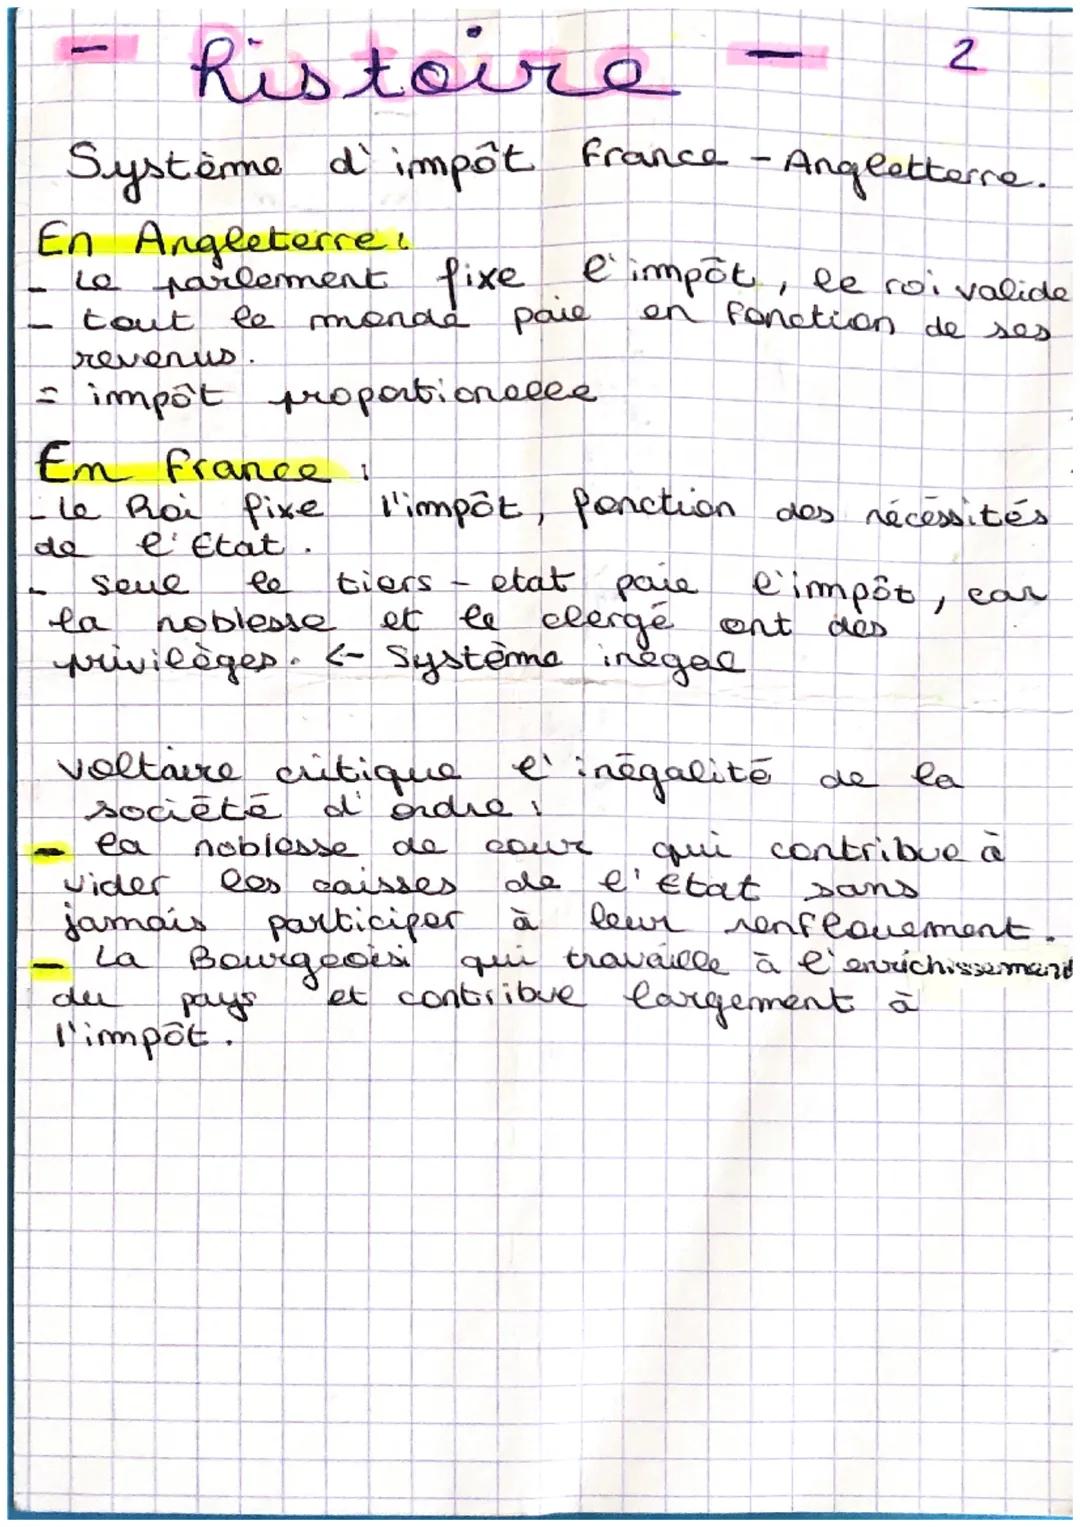 - histoire - 2
Système d'impôt France - Angletterre.
En Angleterre :
- Le parlement fixe l'impôt, le roi valide
- tout le monde paie en fonction de ses
revenus.
= impôt proportionelle
En France :
- le Roi fixe l'impôt, fonction des nécéssités
de l'Etat.
- seul le tiers - etat paie l'impôt, car
la noblesse et le clergé ont des
privilèges. <- Système inégal
Voltaire critique l'inégalité de la
société d'ordre :
- la noblesse de cour qui contribue à
vider les caisses de l'Etat sans
jamais participer à leur renflouement.
- La Bourgeoisi qui travaille à l'enrichissement
du pays et contribue largement à
l'impôt.